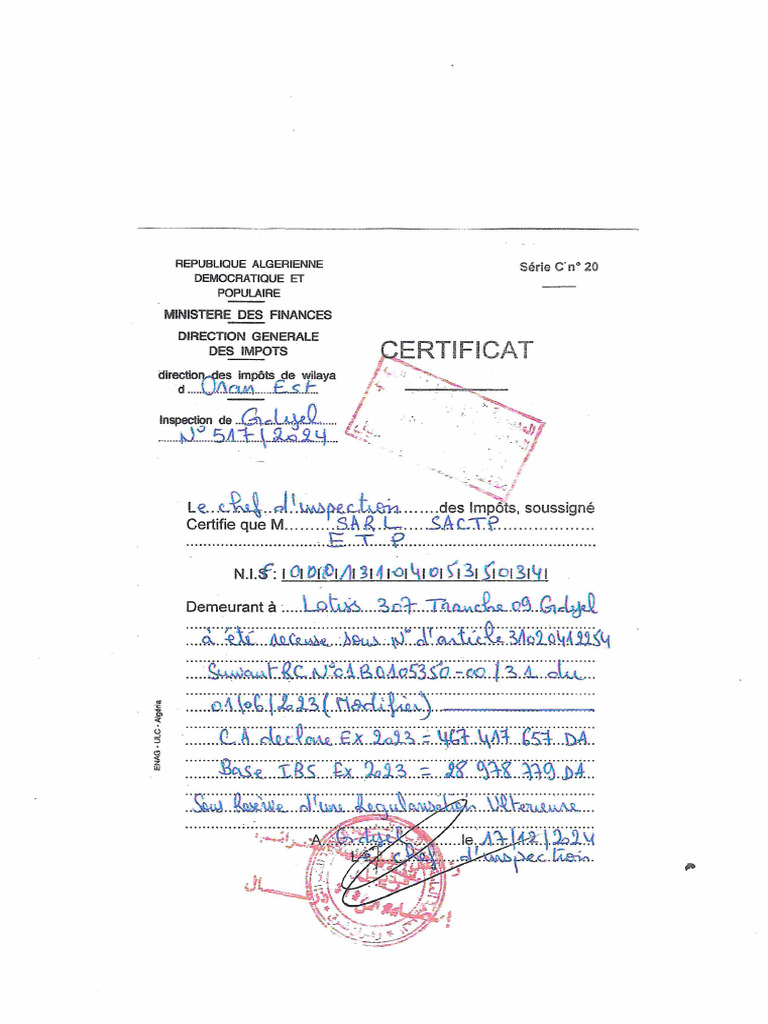 REPUBLIQUE ALGERIENNE
DEMOCRATIQUE ET
POPULAIRE
MINISTERE DES FINANCES
DIRECTION GENERALE
DES IMPOTS
direction des impôts de wilaya
d Oran Est
Inspection de Gdyel
N° 517/2024
Série C n° 20
CERTIFICAT
Le chef d'inspection des Impôts, soussigné
Certifie que M SARL SACTP
E T P
N.I.F : |0|0|0|1|3|1|0|4|0|5|3|5|0|3|4|
Demeurant à Lotiss 307 Tranche 09 Gdyel
à été recense sous N° d'article 31020412254
Suivant RC N° 01B0105350-00/31 du
01/06/2023 (Modifier)
C.A declare Ex 2023 = 467 417 657 DA
Base IBS Ex 2023 = 28 978 779 DA
Sous Reserve d'une Regularisation Ulterieure
A Gdyel le 17/12/2024
Le chef d'inspection
ENAG - ULC - Algéria